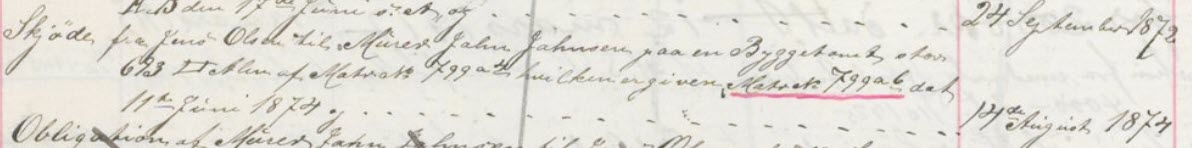 den 17de Juni s. et, og - - - - - - - - 24 September 1872
Skjøde fra Jens Olsen til Mürer Jahn Jahnsen paa en Byggetomt stor
693 □ Alen af Matr. № 799 a 4 hvilken er given Matr. № 799 a 6 dat
11te Juni 1874 og - - - - - - - - - 14de August 1874
Obligation af Mürer Jahn Jahnsen til